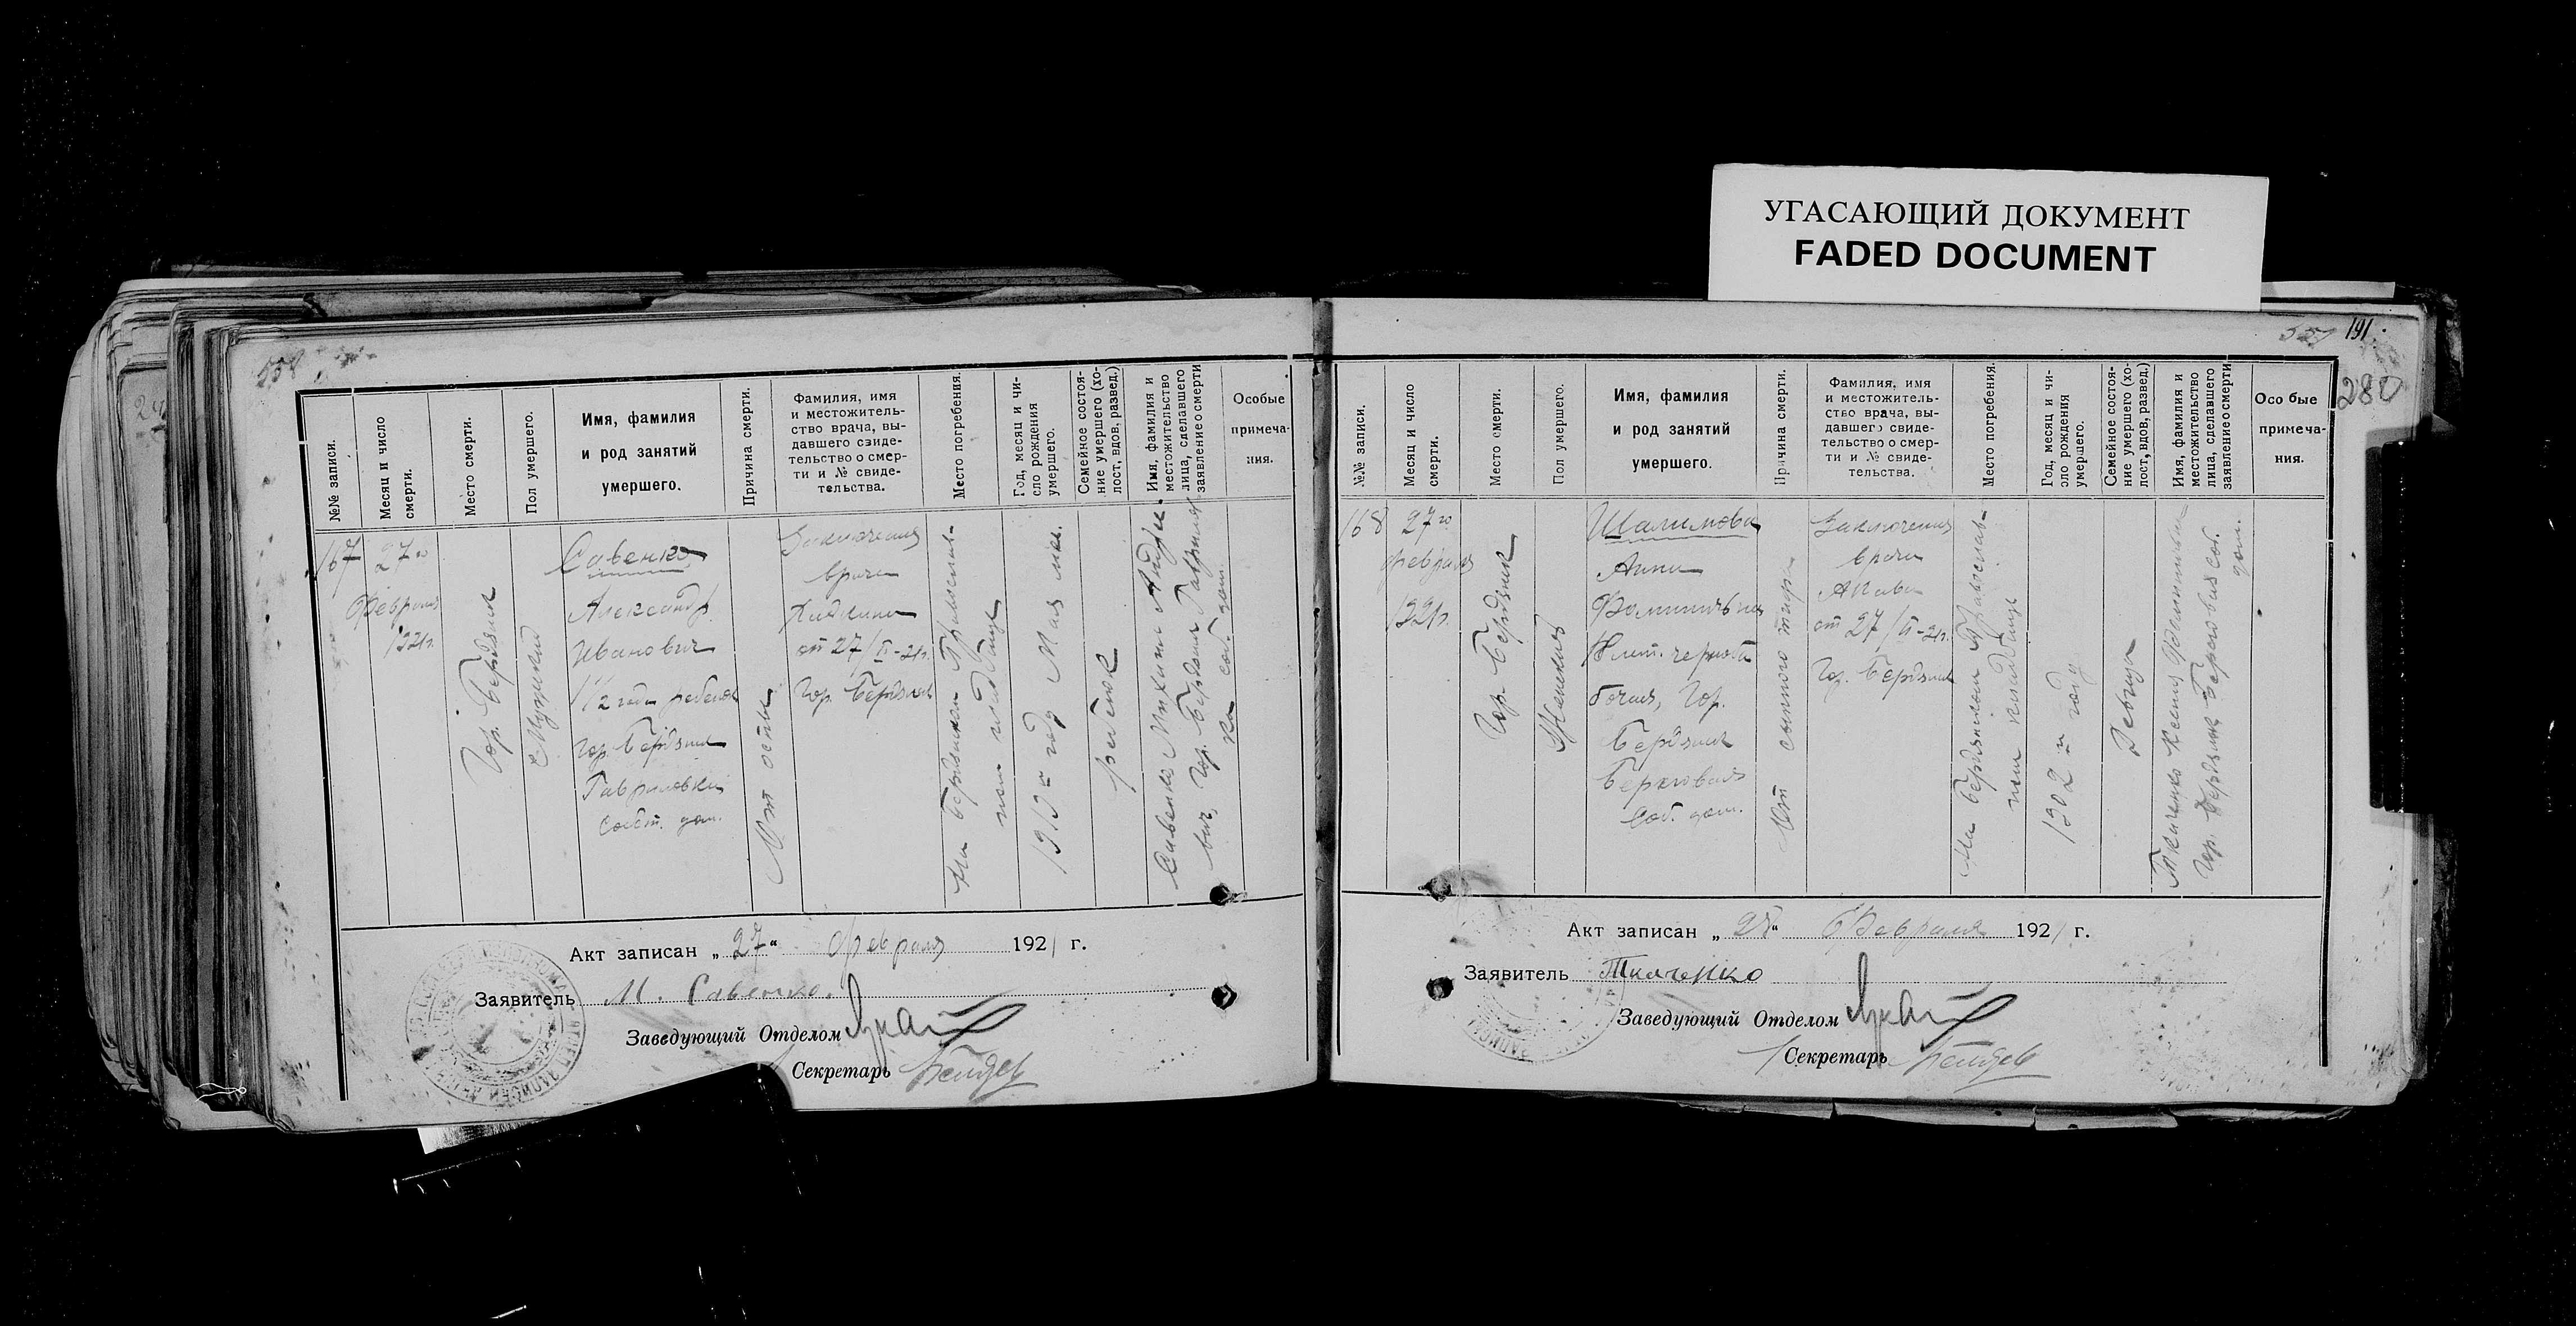 УГАСАЮЩИЙ ДОКУМЕНТ
FADED DOCUMENT
558
№№ записи.
Месяц и число смерти.
Место смерти.
Пол умершего.
Имя, фамилия
и род занятий
умершего.
Причина смерти.
Фамилия, имя
и местожитель-
ство врача, вы-
давшего свиде-
тельство о смер-
ти и № свиде-
тельства.
Место погребения.
Год, месяц и чи-
сло рождения
умершего.
Семейное состоя-
ние умершего (хо-
лост, вдов, развед.)
Имя, фамилия и
местожительство
лица, сделавшего
заявление о смерти
Особые
примеча-
ния.
167
27го
Февраля
1921г.
Гор. Бердянск
Мужской
Савенко
Александр
Иванович
1 1/2 года ребенок
Гор. Бердянск
Гавриловка
собст. дом.
От оспы
Заключение
врача
от 27/II-21г.
Гор. Бердянск
На Бердянском Православ-
ном кладбище
1919 году Мая мес.
ребенок
Савенко Михаил Андрее-
вич, Гор. Бердянск Гаврилов-
ка соб. дом.
Акт записан „27“ Февраля 1921 г.
Заявитель М. Савенко.
Заведующий Отделом
Секретарь
557
191.
280
№№ записи.
Месяц и число
смерти.
Место смерти.
Пол умершего.
Имя, фамилия
и род занятий
умершего.
Причина смерти.
Фамилия, имя
и местожитель-
ство врача, вы-
давшего свиде-
тельство о смер-
ти и № свиде-
тельства.
Место погребения.
Год, месяц и чи-
сло рождения
умершего.
Семейное состоя-
ние умершего (хо-
лост, вдов, развед.)
Имя, фамилия и
местожительство
лица, сделавшего
заявление о смерти
Особые
примеча-
ния.
168
27го
февраля
1921г.
Гор. Бердянск
Женский
Шалимова
Анна
Фоминична
чернора-
бочая, Гор.
Бердянск
Береговая
Соб. дом.
От сыпного тифа
Заключение
врача
от 27/II-21г.
Гор. Бердянск
На Бердянском Православ-
ном кладбище
1902 м году
Девица
Ткаченко Ксения
Гор. Бердянск Береговая соб.
дом.
Акт записан „27“ Февраля 1921 г.
Заявитель Ткаченко
Заведующий Отделом
Секретарь